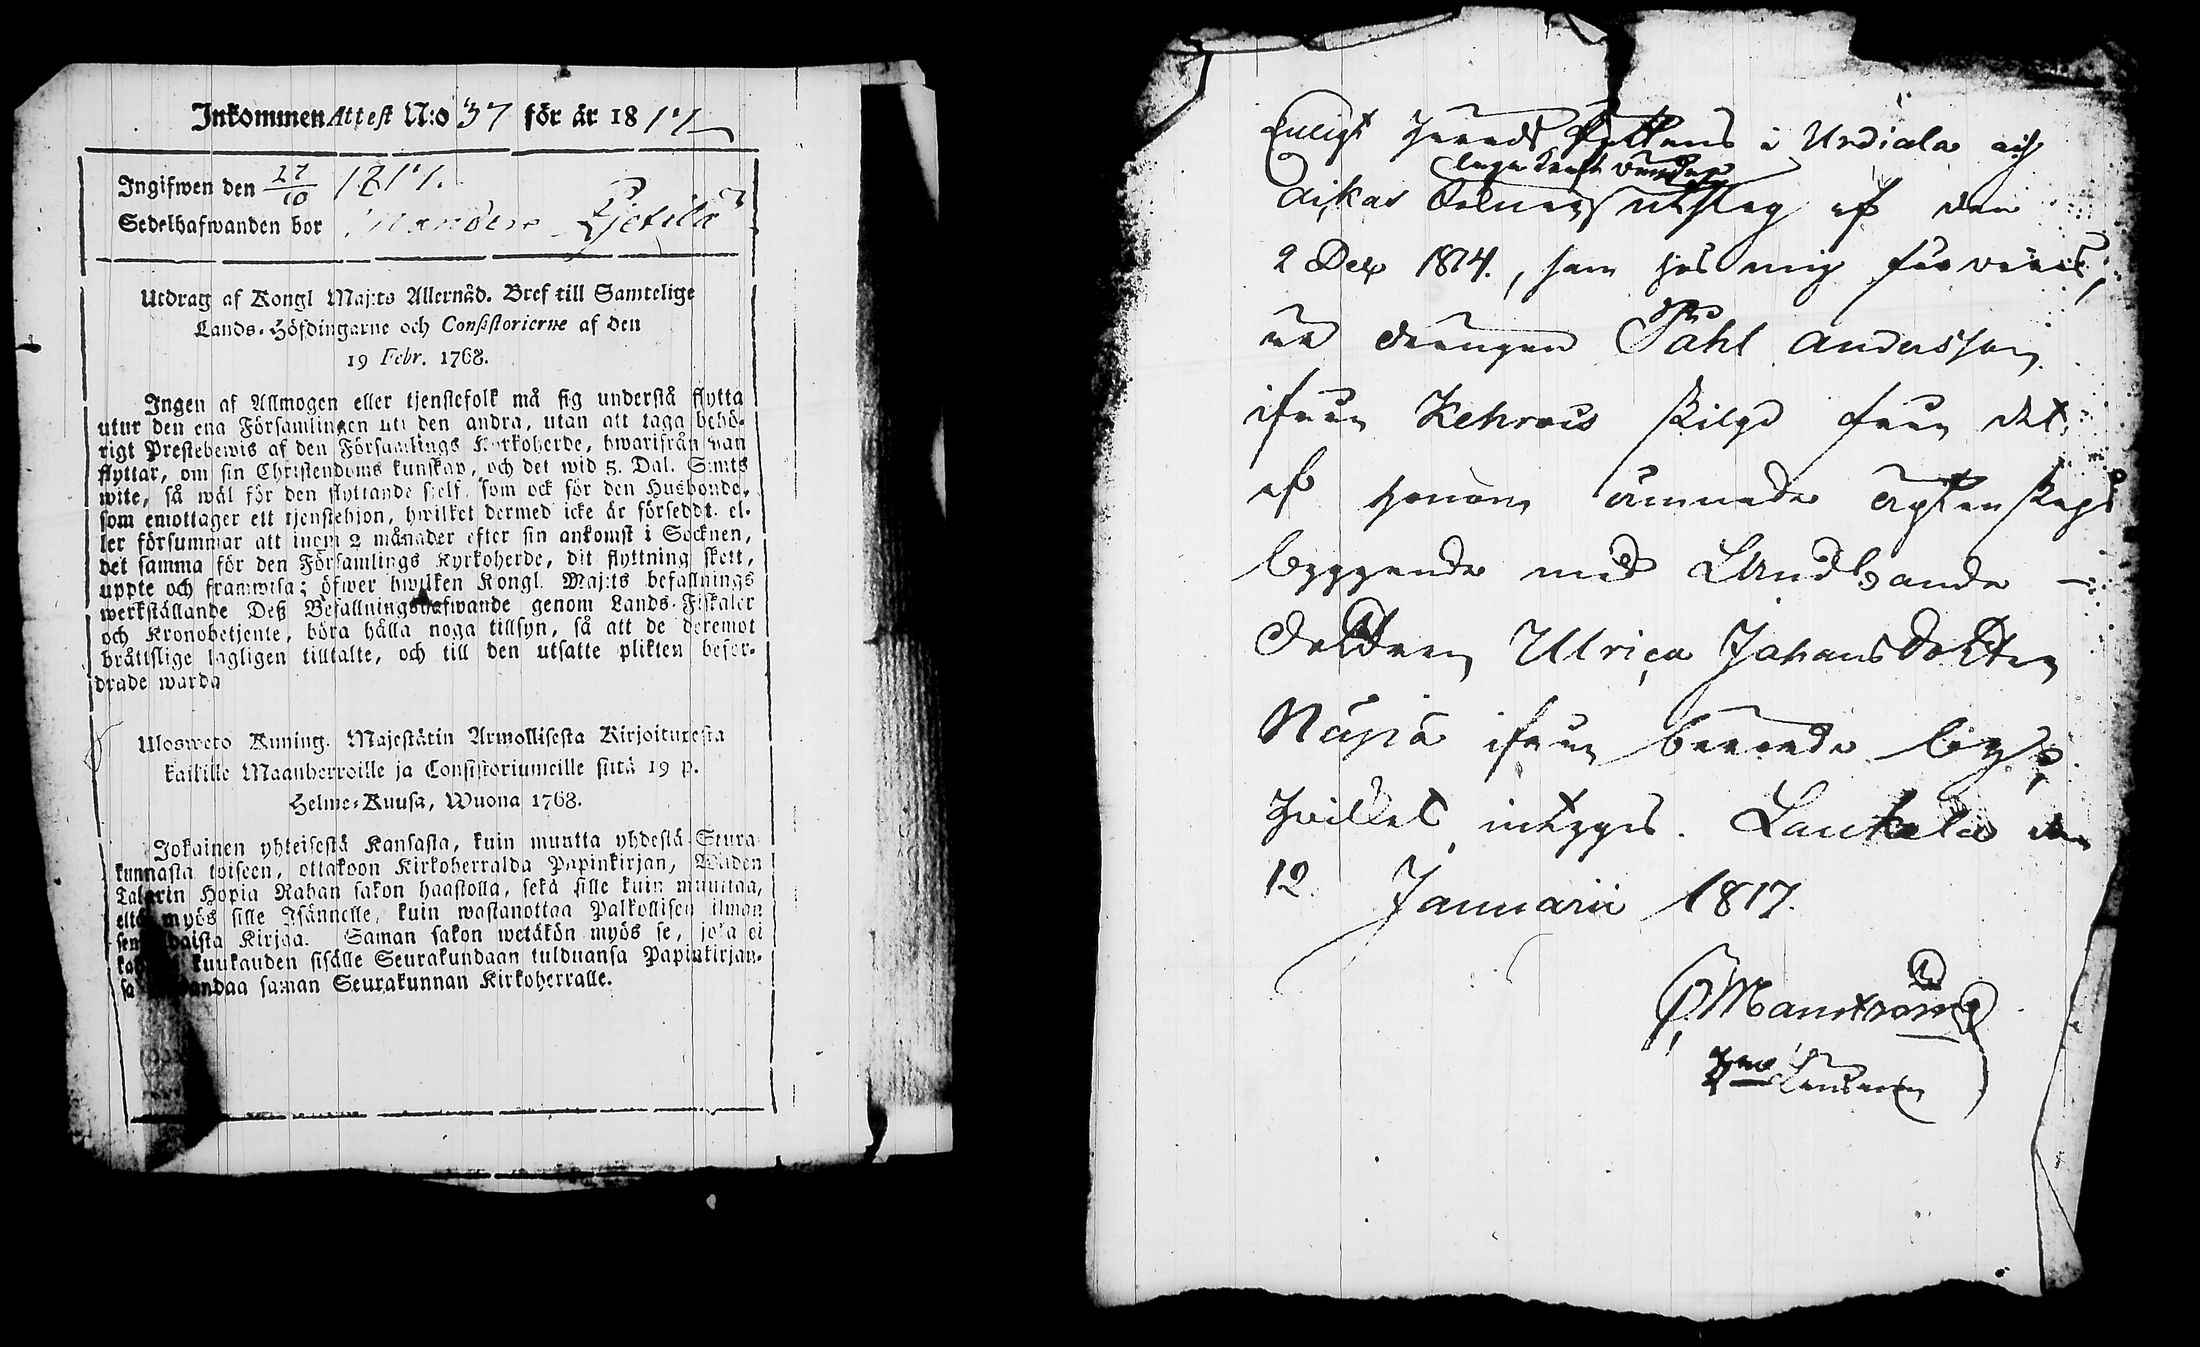 Inkommen Attest N:o 37 för år 1817
Ingifwen den 27/10 1817.
Sedelhafwanden bor
Utdrag af Kongl Maj:ts Allernåd. Bref till Samtelige
Lands-Höfdingarne och Consistorierne af den
19 Febr. 1768.
Ingen af Allmogen eller tjenstefolk må sig understå flytta
utur den ena Församlingen uti den andra, utan att taga behö-
rigt Prestebewis af den Församlings Kyrkoherde, hwarifrån han
flyttar, om sin Christendoms kunskap, och det wid 5. Dal. S:mts
wite, så wäl för den flyttande sjelf, som ock för den Husbonde,
som emottager ett tjenstehjon, hwilket dermed icke är försedt. el-
ler försummar att inom 2 månader efter sin ankomst i Socknen,
det samma för den Församlings Kyrkoherde, dit flyttning skett,
uppte och framwisa; öfwer hwilken Kongl. Maj:ts befallnings
werkställande Deß Befallningshafwande genom Lands-Fiskaler
och Kronobetjente, böra hålla noga tillsyn, så att de deremot
bråttslige lagligen tilltalte, och till den utsatte plikten befor-
drade warda
Ulosweto Kuning. Majestätin Armollisesta Kirjoituxesta
kaikille Maanherroille ja Consistoriumeille siitä 19 p.
Helme-Kuusa, Wuona 1768.
Jokainen yhteisestä Kansasta, kuin muutta yhdestä Seura-
kunnasta toiseen, ottakoon Kirkoherralda Papinkirjan, Wiiden
Talarin Hopia Rahan sakon haastolla, sekä sille kuin muuttaa,
että myös sille Isännelle, kuin wastanottaa Palkollisen ilman
Kirjaa. Saman sakon wetäkön myös se, joka ei
kuukauden sisälle Seurakundaan tulduansa Papinkirjan-
sa saman Seurakunnan Kirkoherralle.
Enligt Härads Rättens i Urdiala och
laga kraft vundne
Akas utslag af den
2 Dec 1814., som hos mig
Drängen Påhl Andersson
ifrån Kehrois skilgd från det
af honom ämnade Ägtenskaps
byggande med Landbonde
Dottren Ulrica Johansdotter
ifrån berörde by,
Hvilket intygas. Laukela den
12 Januarii 1817.
Manström